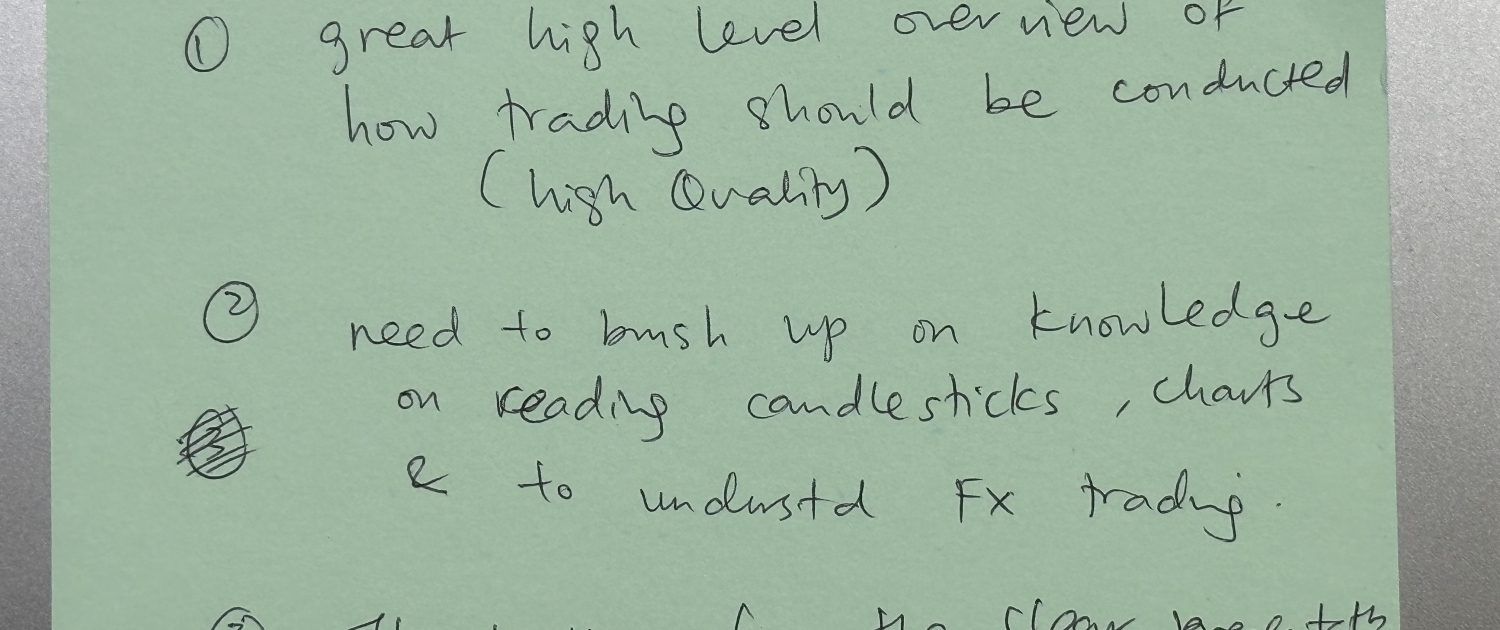 ① great high level overview of
how trading should be conducted
(high Quality)
② need to brush up on knowledge
on reading candlesticks, charts
& to understd FX trading.